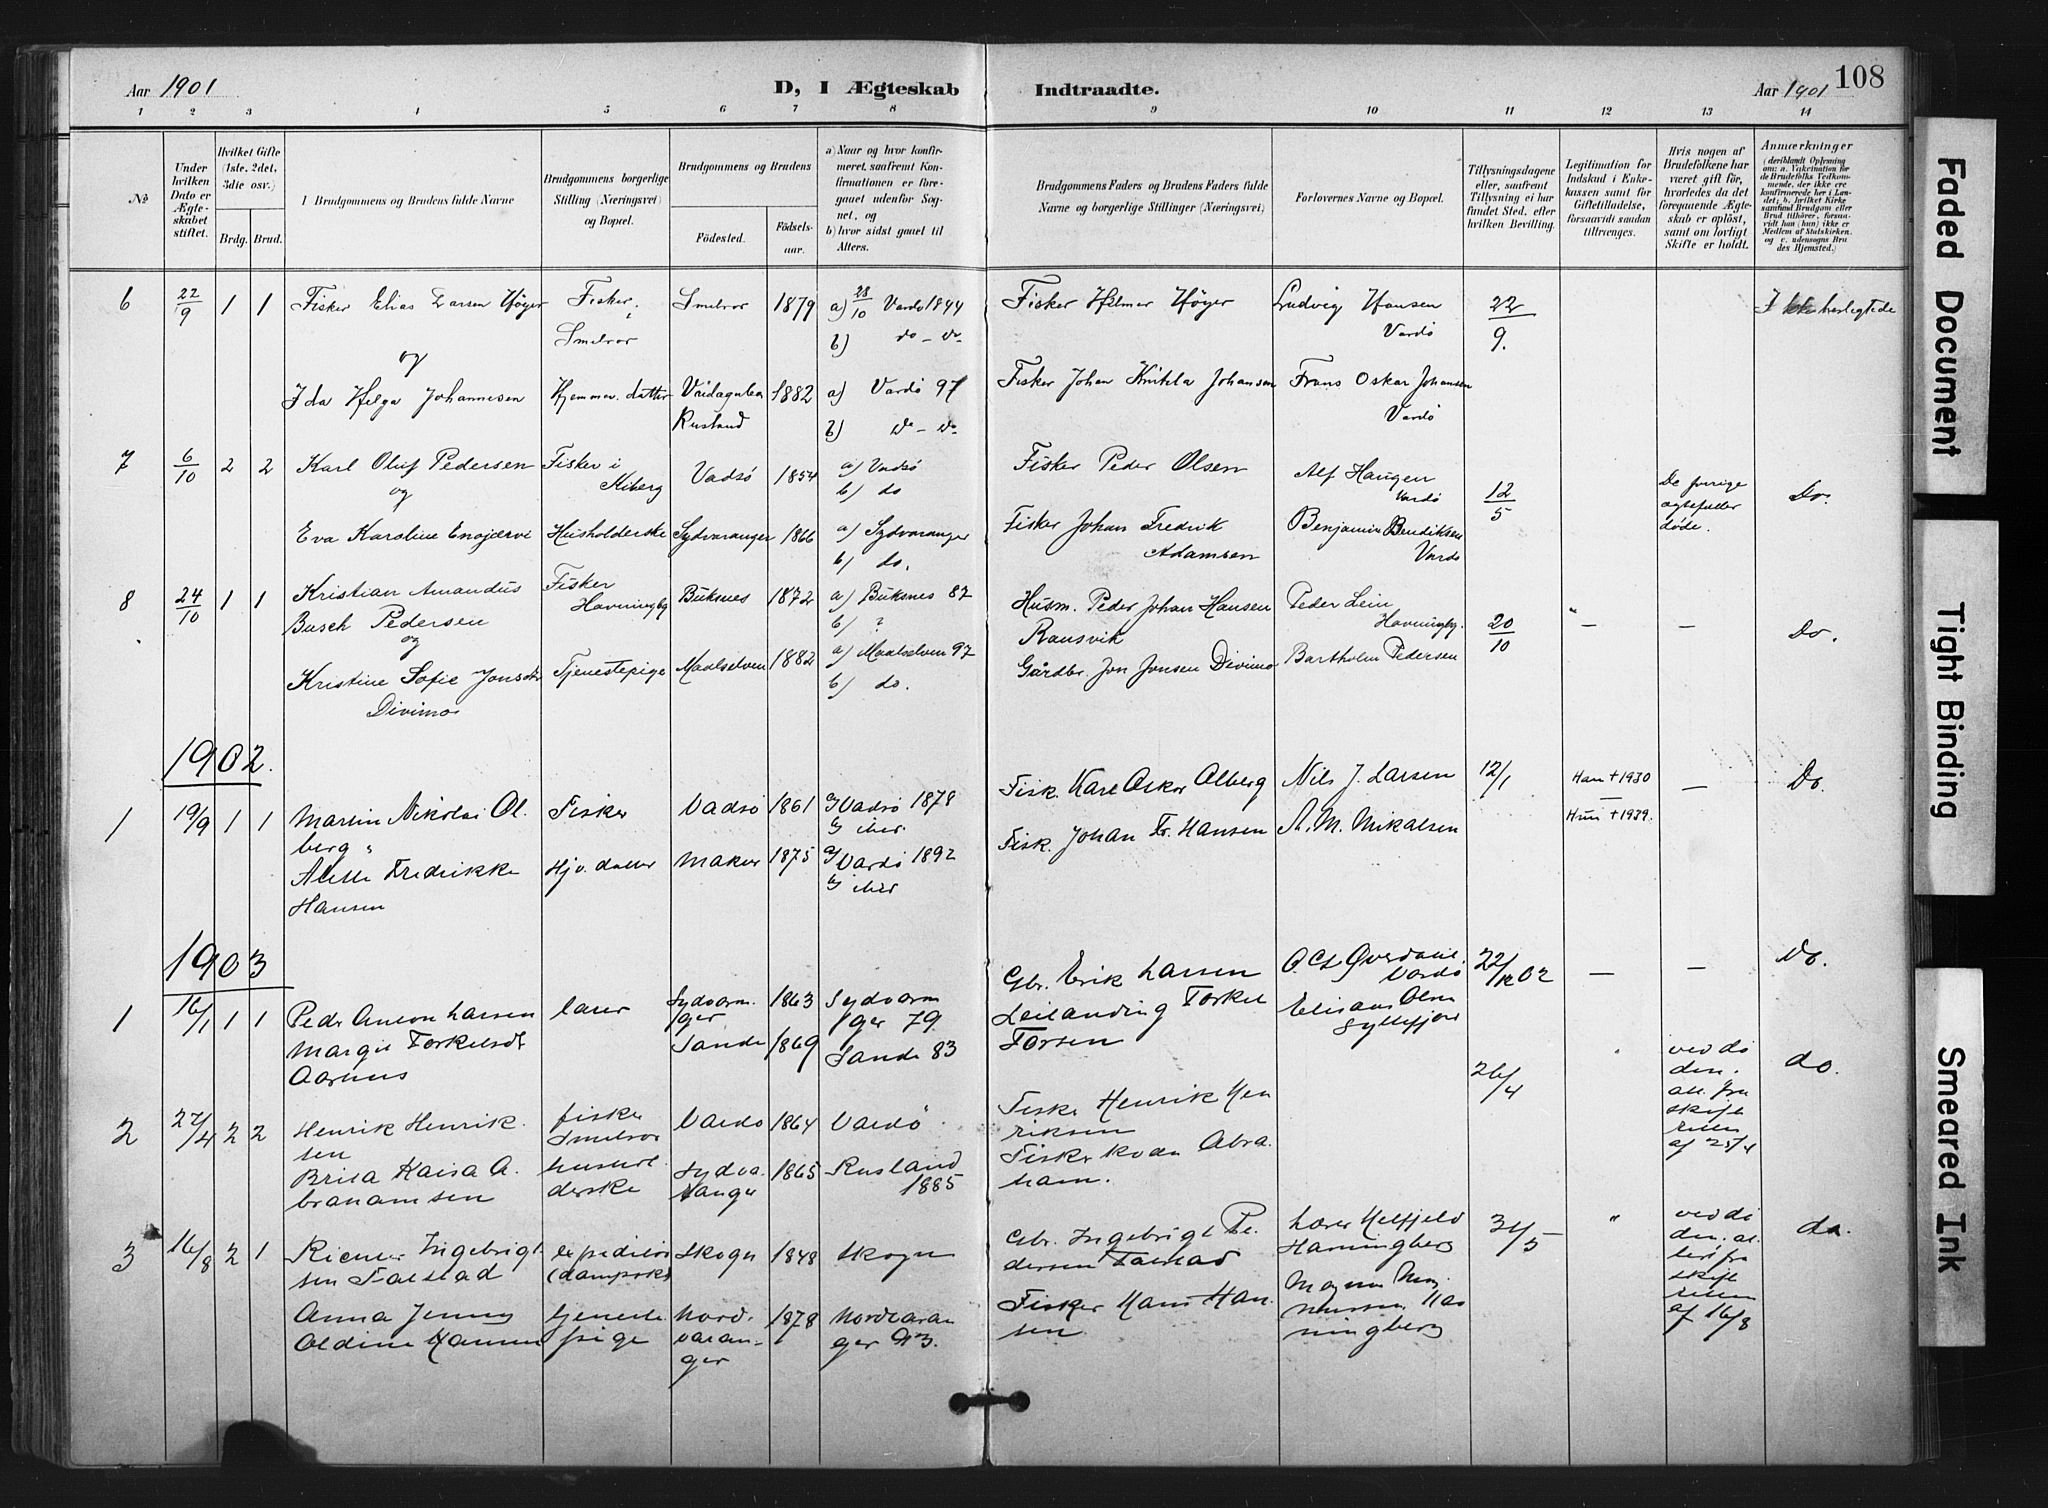 Aar 1901
D, I Ægteskab
Indtraadte.
Aar 1901
108
1 2 3 4 5 6 7 8 9 10 11 12 13 14
№
Under hvilken Dato er Ægteskabet stiftet.
Hvilket Gifte (1ste, 2det, 3die osv.)
Brdg. Brud.
I Brudgommens og Brudens fulde Navne
Brudgommens borgerlige Stilling (Næringsvei) og Bopæl.
Brudgommens og Brudens
Fødested.
Fødselsaar.
a) Naar og hvor konfirmeret, saafremt Konfirmationen er foregaaet udenfor Sognet, og
b) hvor sidst gaaet til Alters.
Brudgommens Faders og Brudens Faders fulde Navne og borgerlige Stillinger (Næringsvei)
Forlovernes Navne og Bopæl.
Tillysningsdagene eller, saafremt Tillysning ei har fundet Sted, efter hvilken Bevilling.
Legitimation for Indskud i Enkekassen samt for Giftetilladelse, forsaavidt saadan tiltrænges.
Hvis nogen af Brudefolkene har været gift før, hvorledes da det foregaaende Ægteskab er opløst, samt om lovligt Skifte er holdt.
Anmærkninger
6 22/9 1 1 Fisker Elias Larsen Høyer Fisker i Smelror Smelror 1879 a) 28/10 Vardø 1894 b) do - do
Fisker Hilmer Høyer Ludvig Hansen Vardø 22/9. Ikke beslegtede
og
Ida Helga Johannesen Hjemmev. datter Rusland 1882 a) Vardø 97 b) do - do
Fisker Johan Johansen Frans Oskar Johansen Vardø
7 6/10 2 2 Karl Oluf Pedersen Fisker i Kiberg Vadsø 1854 a) Vadsø b) do
Fisker Peder Olsen Alf Haugen Vardø 12/5 De forrige ægtefæller døde. Do.
og
Eva Karoline Husholderske Sydvaranger 1866 a) Sydvaranger b) do.
Fisker Johan Fredrik Adamsen Benjamin Bendiksen Vardø
8 24/10 1 1 Kristian Amandus Busch Pedersen Fisker Havningbg Buksnes 1872 a) Buksnes 87 b) ?
Husm. Peder Johan Hansen Ransvik Peder Lein Havningbg. 20/10 " — — Do.
og
Kristine Sofie Jonsdtr Divimo Tjenestepige Maalselven 1882 a) Maalselven 97 b) do.
Gårdbr. Jon Jonsen Divimo Bartholm Pedersen
1902.
1 19/9 1 1 Martin Nikolai Olberg Fisker Vadsø 1861 a/ Vadsø 1878 b/ ther.
Fisk. Karl Oskar Olberg Nils J. Larsen 12/1 Han + 1930 — Do.
Alette Fredrikke Hansen Hjv. datter Makur 1875 a/ Vardø 1892 b/ ther
Fisk. Johan Fr. Hansen A. M. Mikalsen Hun + 1939.
1903
1 16/1 1 1 Peder Anton Larsen lærer Sydvaranger 1863 Sydvaranger 79
Gbr. Erik Larsen Vardø 22/12 02 — — Do.
Margit Torkelsdt Aarhus Sande 1869 Sande 83
Leilænding Torkel Torsen Olsen Syltefjord
2 27/4 2 2 Henrik Henriksen fisker Smelror Vardø 1864 Vardø
Fisker Henrik Henriksen 26/4 " ved døden. att. fra skifteretten af 25/4 do.
Brita Kaisa Abrahamsen husholderske Sydvaranger 1865 Rusland 1885
Fisker Abraham.
3 16/8 2 1 Ingebrigtsen Falstad expeditør (dampsk.) Skogn 1848 Skogn
Gbr. Ingebrigt Pedersen Falstad Lærer Havningberg 31/5 " ved døden. attest fra skifteretten af 16/8 do.
Anna Jenny Oldine Hansen tjenestepige Nordvaranger 1878 Nordvaranger 93.
Fisker Hans Hansen Magnus Havningberg
Faded Document
Tight Binding
Smeared Ink